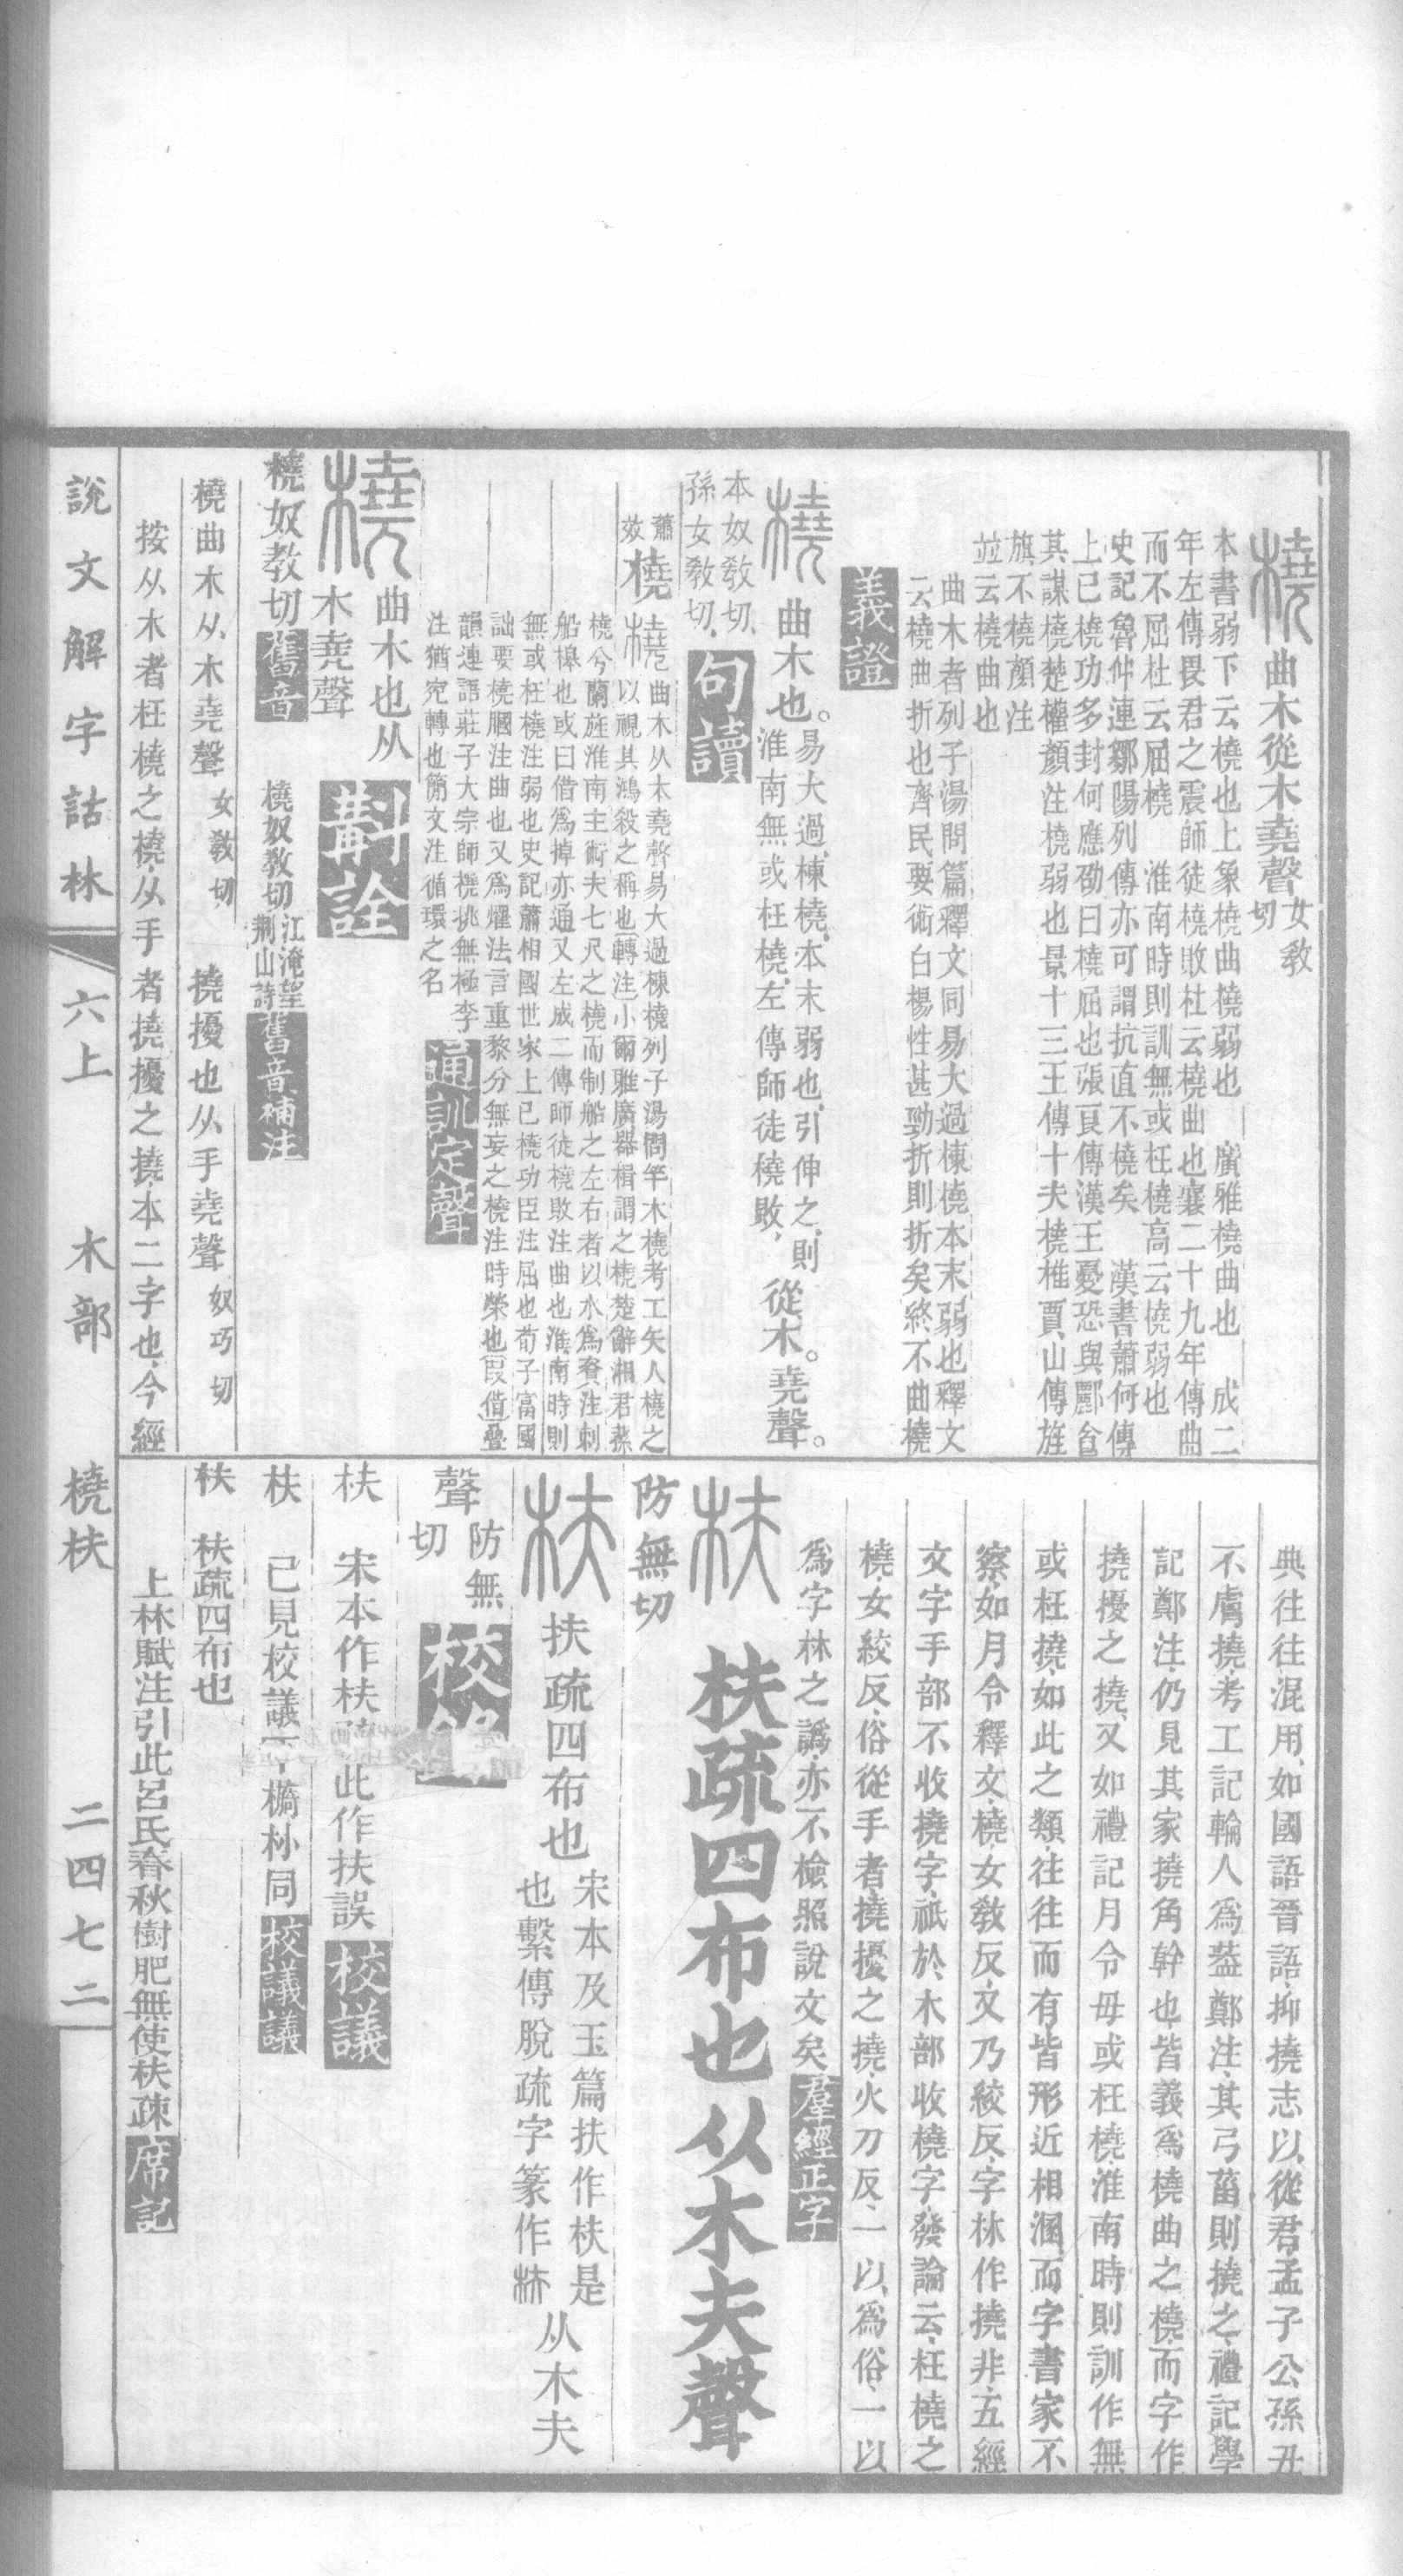 橈曲木從木堯聲女敎切
本書弱下云橈也上象橈曲橈弱也 廣雅橈曲也 成二
年左傳畏君之震師徒橈敗杜云橈曲也襄二十九年傳曲
而不屈杜云屈橈 淮南時則訓無或枉橈高云橈弱也
史記魯仲連鄒陽列傳亦可謂抗直不橈矣 漢書蕭何傳
上已橈功多封何應劭曰橈屈也張良傳漢王憂恐與酈食
其謀橈楚權顏注橈弱也景十三王傳十夫橈椎賈山傳旌
旗不橈顏注
竝云橈曲也
曲木者列子湯問篇釋文同易大過棟橈本末弱也釋文
云橈曲折也齊民要術白楊性甚勁折則折矣終不曲橈
義證
橈曲木也。易大過、棟橈、本末弱也、引伸之、則
淮南無或枉橈、左傳師徒橈敗、從木。堯聲。
本奴敎切、
孫女敎切、句讀
蕭
效橈橈曲木从木堯聲易大過棟橈列子湯問竿木橈考工矢人橈之
以視其鴻殺之稱也轉注小爾雅廣器楫謂之橈楚辭湘君蓀
橈兮蘭旌淮南主術夫七尺之橈而制船之左右者以水爲資注刺
船槔也或曰借爲掉亦通又左成二傳師徒橈敗注曲也淮南時則
無或枉橈注弱也史記蕭相國世家上已橈功臣注屈也荀子富國
詘要橈膕注曲也又爲燿法言重黎分無妄之橈注時榮也叚借疊
韻連語莊子大宗師撓挑無極李
注猶宛轉也簡文注循環之名通訓定聲
橈曲木也从
木堯聲斠詮
橈奴教切舊音 橈奴敎切江淹望荆山詩舊音補注
橈曲木从木堯聲女敎切 撓擾也从手堯聲奴巧切
按从木者枉橈之橈、从手者撓擾之撓、本二字也、今經
典往往混用、如國語晉語、抑撓志以從君、孟子公孫丑
不膚撓、考工記輪人爲葢鄭注、其弓菑則撓之、禮記學
記鄭注、仍見其家撓角幹也、皆義爲橈曲之橈、而字作
撓擾之撓、又如禮記月令毋或枉橈、淮南時則訓作無
或枉撓、如此之類、往往而有、皆形近相溷、而字書家不
察、如月令釋文、橈女敎反、又乃絞反、字林作撓非、五經
文字手部不收撓字、祇於木部收橈字、發論云、枉橈之
橈、女絞反、俗從手者撓擾之撓、火刀反、一以爲俗、一以
爲字林之譌、亦不檢照說文矣羣經正字
枎枎疏四布也从木夫聲
防無切
枎扶疏四布也宋本及玉篇扶作枎是
也繫傳脫疏字篆作枎从木夫
聲防無切校錄
枎 宋本作枎疏此作扶誤校議
枎 已見校議下橢朴同校議議
枎 枎疏四布也
上林賦注引此呂氏春秋樹肥無使枎疎席記
說文解字詁林 六上 木部 橈枎 二四七二